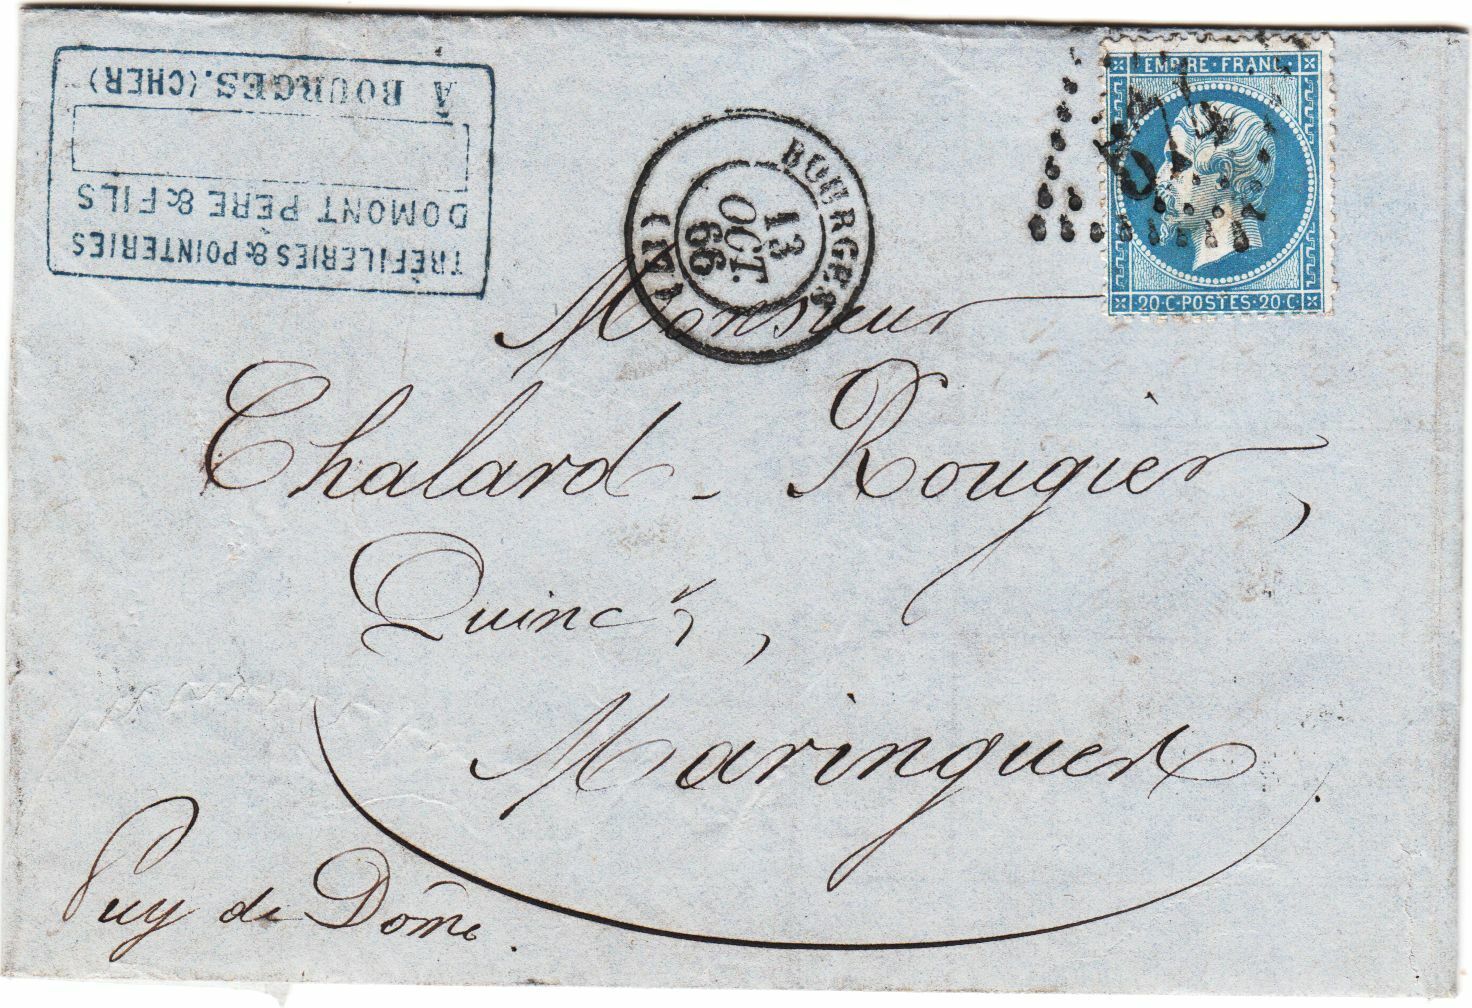 TRÉFILERIES & POINTERIES
DOMONT PÈRE & FILS
À BOURGES. (CHER)
BOURGES
13
OCT.
66
(17)
EMPIRE · FRANC
20·C·POSTES·20·C
Monsieur
Chalard - Rougier,
Quinc r,
Maringues
Puy de Dôme.